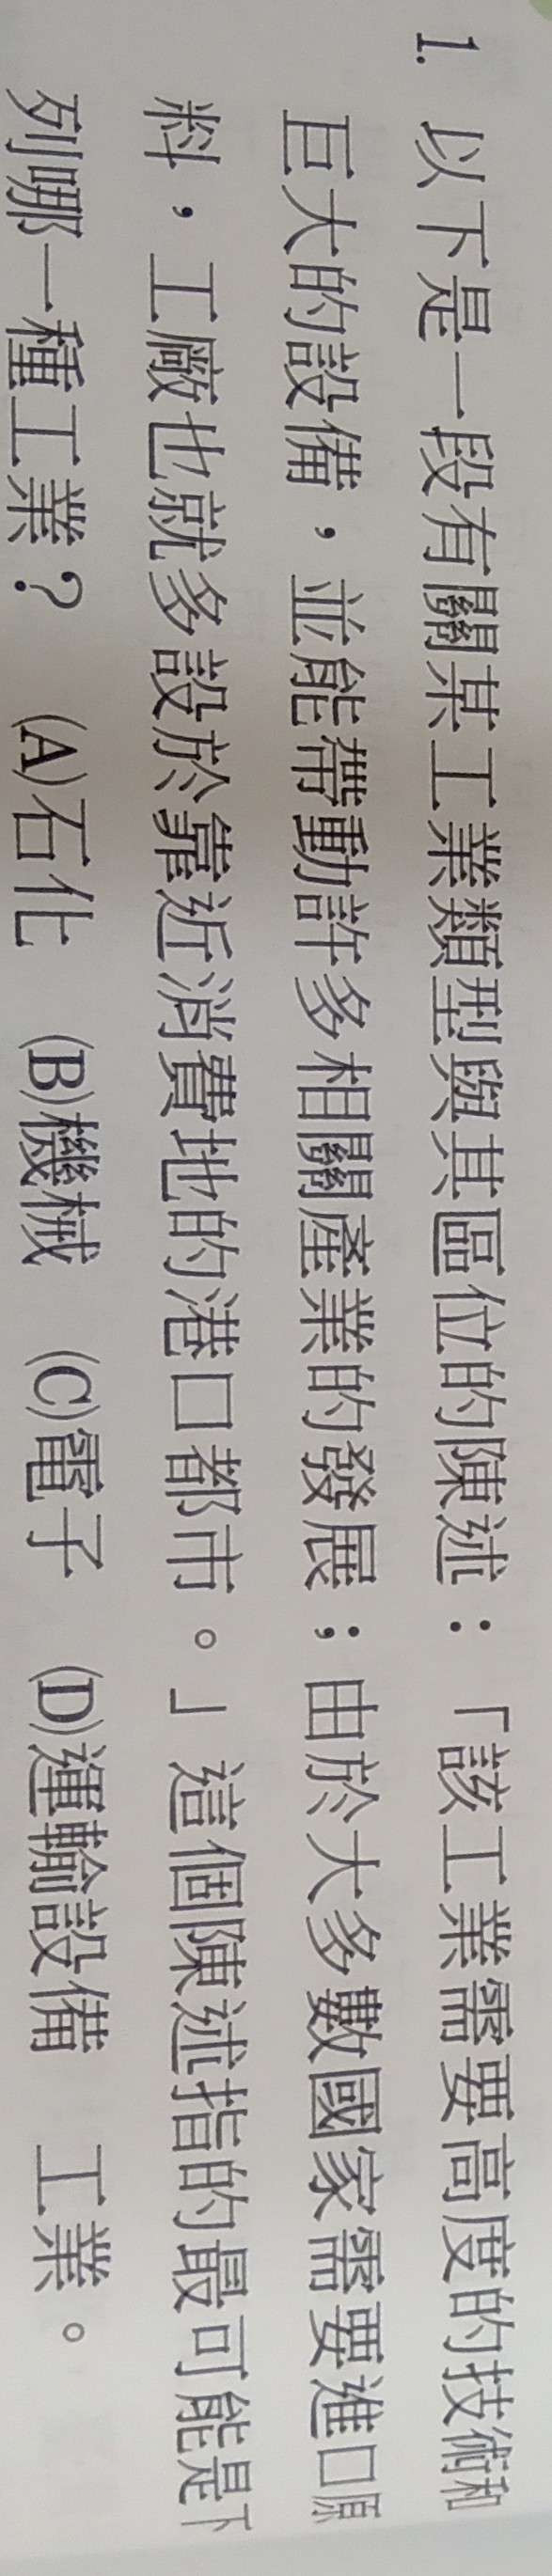 1. 以下是一段有關某工業類型與其區位的陳述：「該工業需要高度的技術和
巨大的設備，並能帶動許多相關產業的發展；由於大多數國家需要進口原
料，工廠也就多設於靠近消費地的港口都市。」這個陳述指的最可能是下
列哪一種工業？ (A)石化 (B)機械 (C)電子 (D)運輸設備 工業。